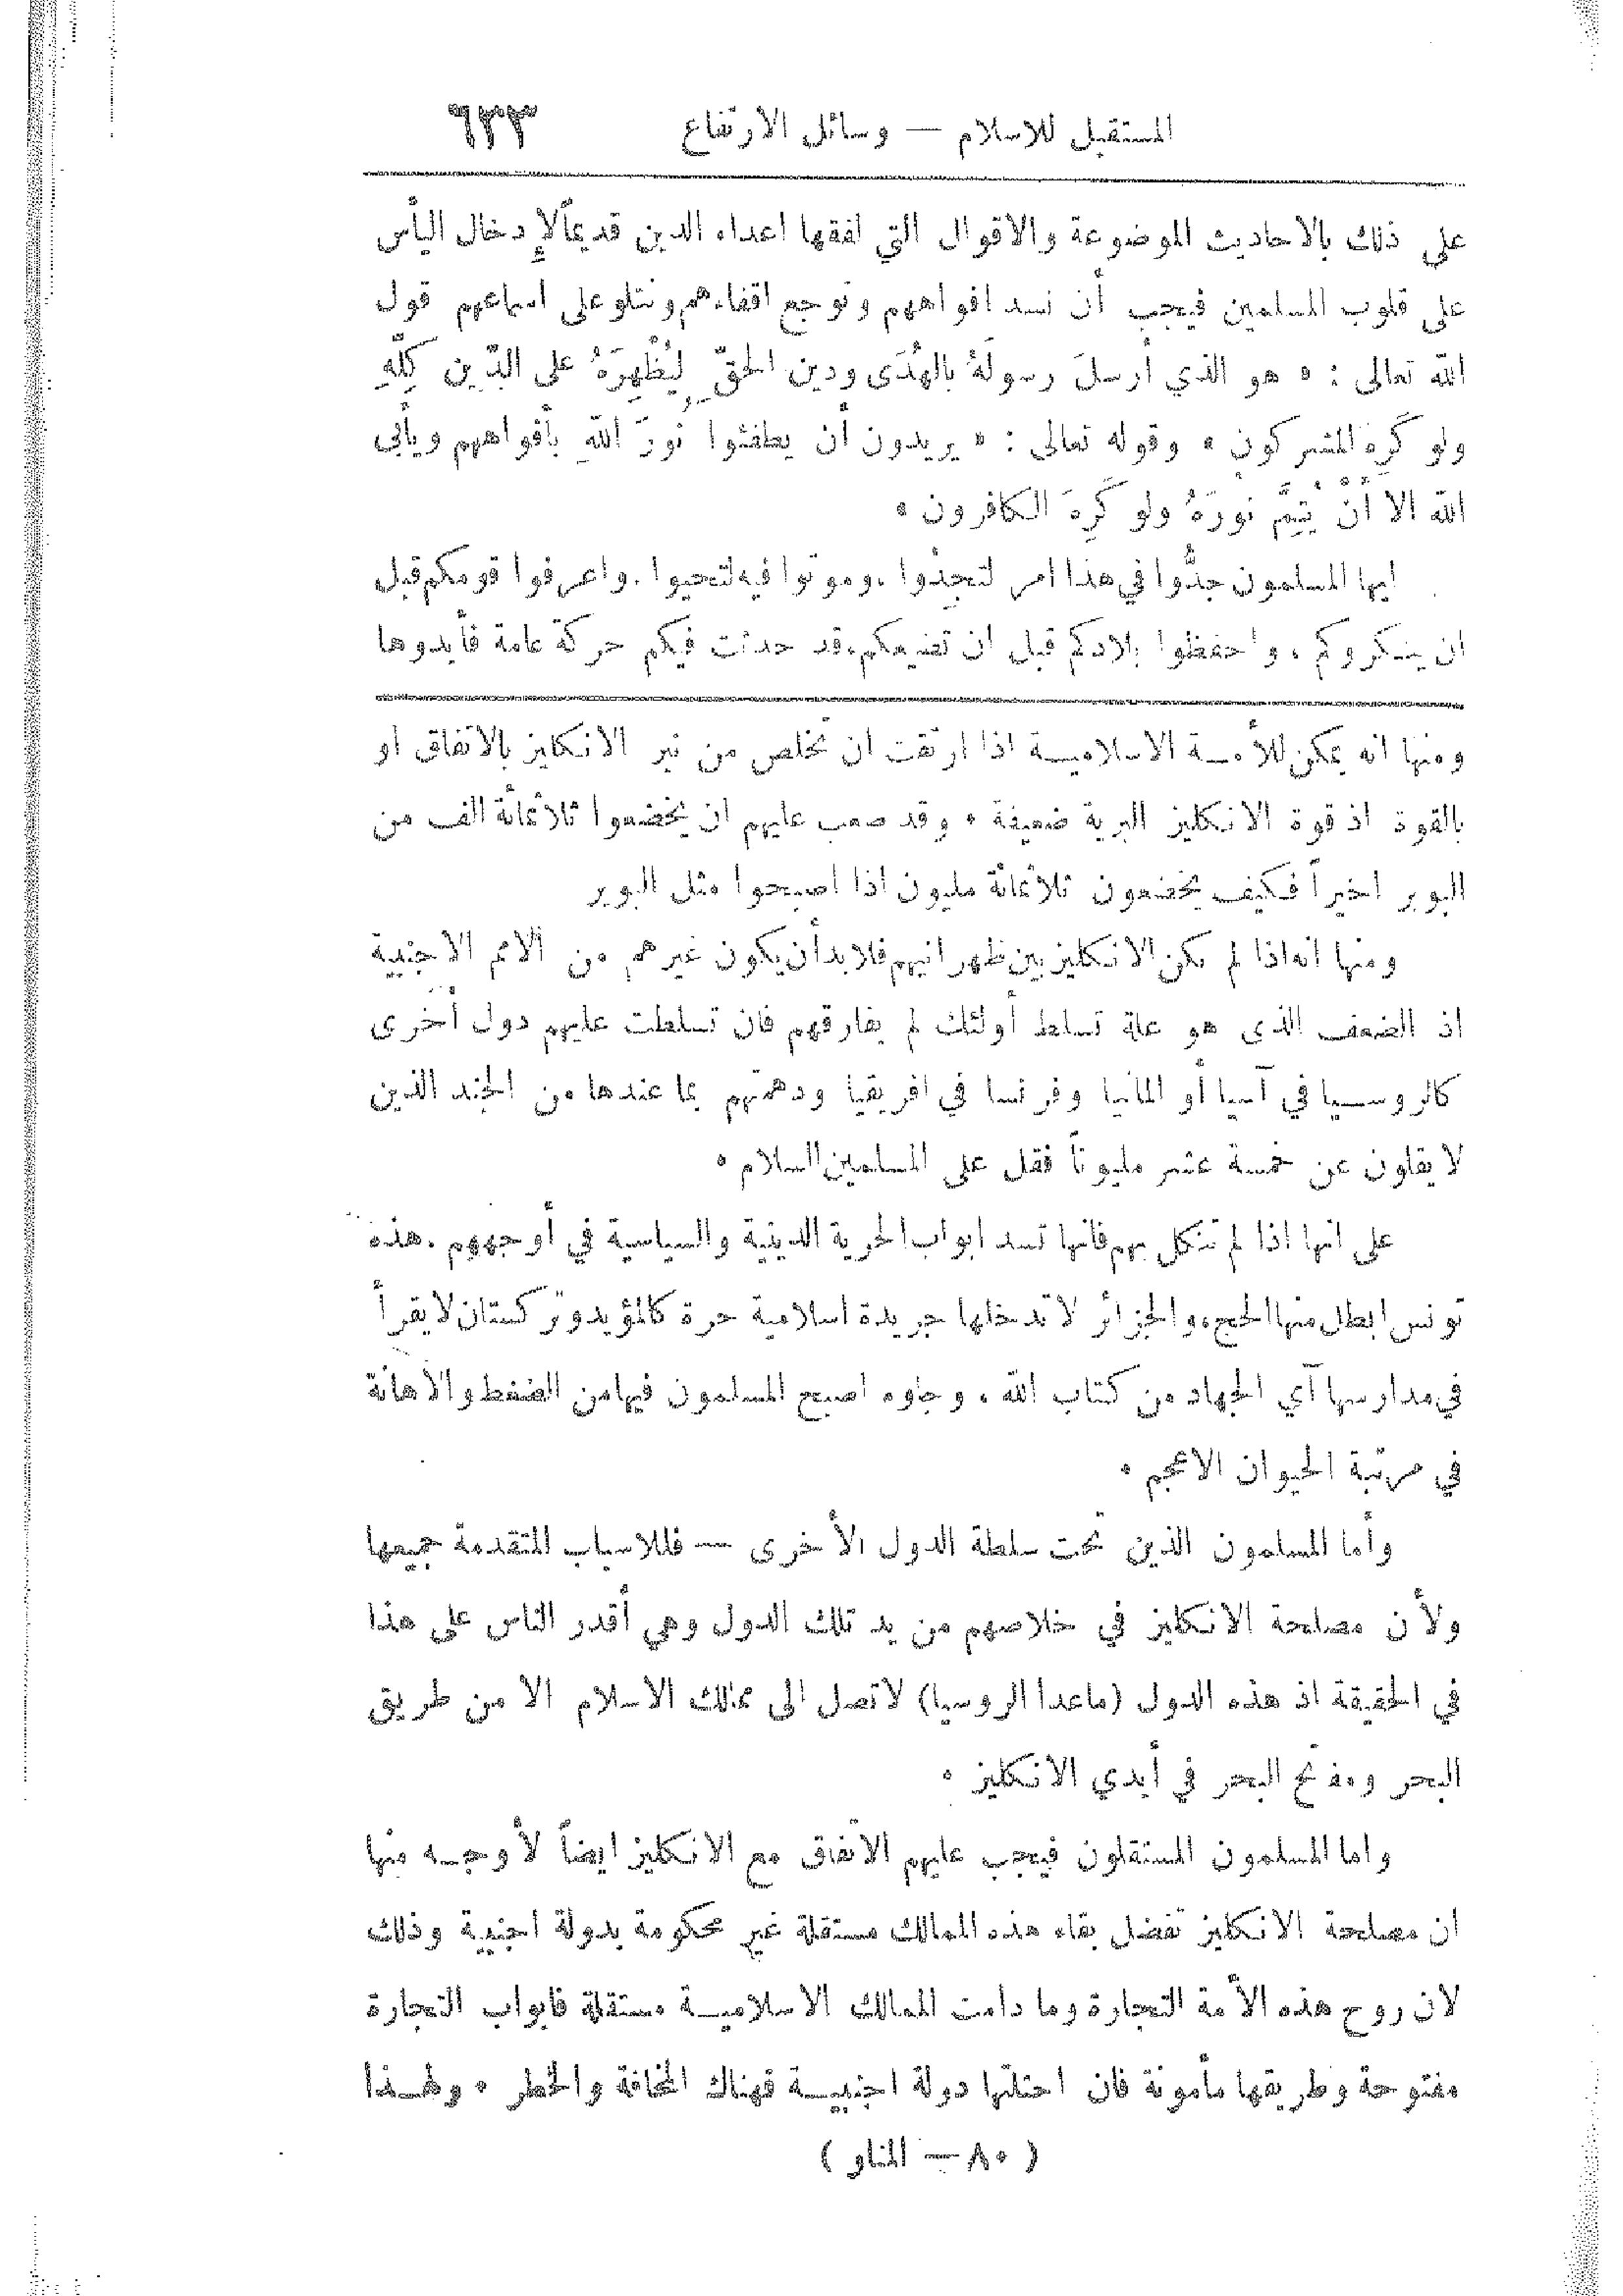 المستقبل للاسلام — وسائل الارتفاع ٦٣٣
على ذلك بالاحاديث الموضوعة والاقوال التي لفقها اعداء الدين قديماً لإدخال اليأس
على قلوب المسلمين فيجب أن نسد افواههم ونوجع اقفاءهم ونتلو على اسماعهم قول
الله تعالى : « هو الذي أرسلَ رسولَهُ بالهُدَى ودين الحقّ لِيُظْهِرَهُ على الدِّين كلِّهِ
ولو كَرِهَ المشركون » وقوله تعالى : « يريدون أن يطفئوا نُورَ اللهِ بأفواههم ويأبى
الله الا أنْ يُتِمَّ نُورَهُ ولو كَرِهَ الكافرون »
ايها المسلمون جدُّوا في هذا امر لتجدوا . وموتوا فيه لتحيوا . واعرفوا قومكم قبل
ان ينكروكم ، واحفظوا بلادكم قبل ان تضيعكم ، قد حدثت فيكم حركة عامة فأيدوها
ومنها انه يمكن للأمة الاسلامية اذا ارتقت ان تخلص من نير الانكليز بالاتفاق او
بالقوة اذ قوة الانكليز البرية ضعيفة ، وقد صعب عليهم ان يخضعوا ثلاثمائة الف من
البوير اخيراً فكيف يخضعون ثلاثمائة مليون اذا اصبحوا مثل البوير
ومنها انه اذا لم تكن الانكليز بين ظهرانيهم فلا بد أن يكون غيرهم من الامم الاجنبية
اذ الضعف الذى هو علة تسلط أولئك لم يفارقهم فان تسلطت عليهم دول أخرى
كالروسيا في آسيا أو المانيا وفرنسا في افريقيا ودهمتهم بما عندها من الجند الذين
لا يقلون عن خمسة عشر مليوناً فقل على المسلمين السلام ،
على انها اذا لم تنكل بهم فانها تسد ابواب الحرية الدينية والسياسية في أوجههم . هذه
تونس ابطل منها الحج ، والجزائر لا تدخلها جريدة اسلامية حرة كالمؤيد وتركستان لا يقرأ
في مدارسها آي الجهاد من كتاب الله ، وجاوه اصبح المسلمون فيها من الضغط والاهانة
في مرتبة الحيوان الاعجم ،
وأما المسلمون الذين تحت سلطة الدول الأخرى — فللاسباب المتقدمة جميعها
ولأن مصلحة الانكليز في خلاصهم من يد تلك الدول وهي أقدر الناس على هذا
في الحقيقة اذ هذه الدول (ماعدا الروسيا) لا تصل الى ممالك الاسلام الا من طريق
البحر ومفتح البحر في أيدي الانكليز ،
واما المسلمون المستقلون فيجب عليهم الاتفاق مع الانكليز ايضاً لأوجه منها
ان مصلحة الانكليز تفضل بقاء هذه الممالك مستقلة غير محكومة بدولة اجنبية وذلك
لان روح هذه الأمة التجارة وما دامت الممالك الاسلامية مستقلة فابواب التجارة
مفتوحة وطريقها مأمونة فان احتلتها دولة اجنبية فهناك المخافة والخطر ، ولهذا
( ٨٠ — المنار )